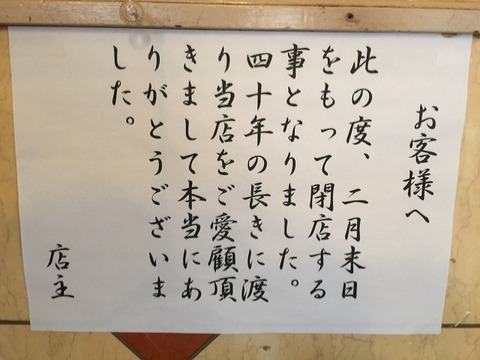 お客様へ
此の度、二月末日
をもって閉店する
事となりました。
四十年の長きに渡
り当店をご愛顧頂
きまして本当にあ
りがとうございま
した。
店主